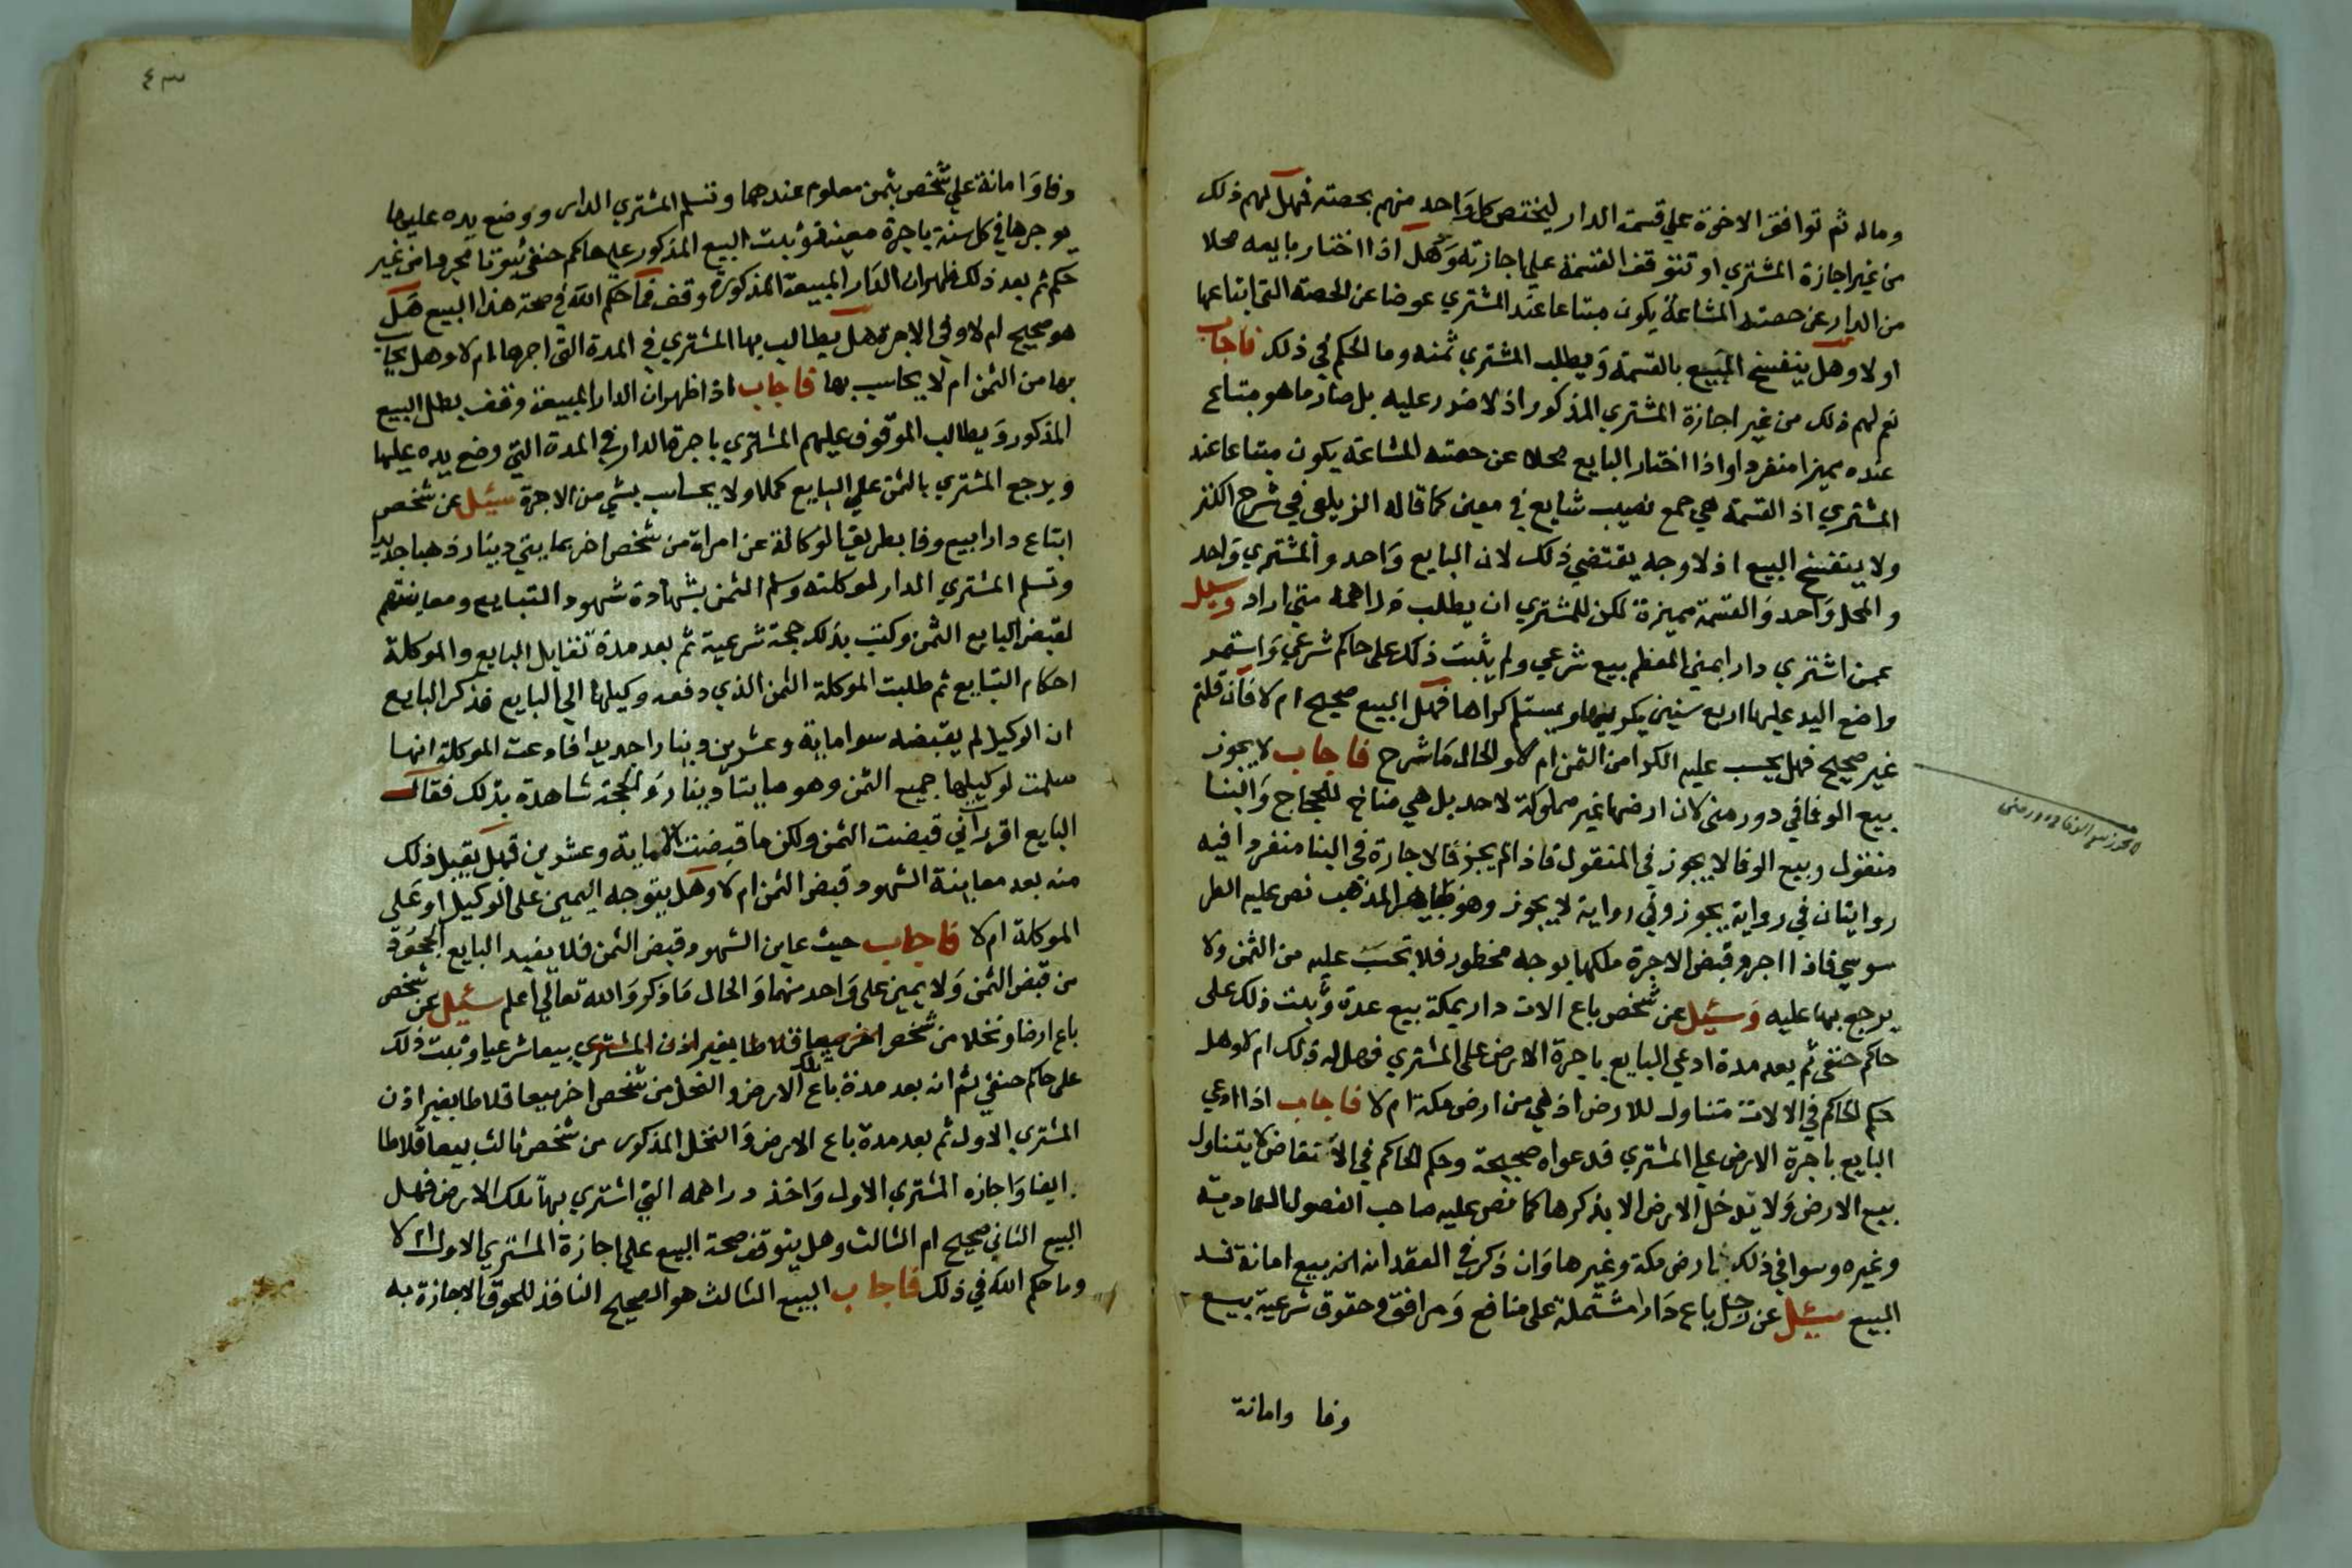 وماله ثم توافق الاخوة علي قسمة الدار ليختص كل واحد منهم بحصته فهل لهم ذلك
من غير اجازة المشتري او تتوقف القسمة علي اجازته وهل اذا اختار بايعه محلا
من الدار عن حصته المشاعة يكون مبتاعا عند المشتري عوضا عن الحصة التي ابتاعها
او لا وهل ينفسخ المبيع بالقسمة ويطلب المشتري ثمنه وما الحكم في ذلك فاجاب
نعم لهم ذلك من غير اجازة المشتري المذكور اذ لا ضرر عليه بل صار ما هو مبتاع
عنده مميزا منفردا واذا اختار البايع محلا عن حصته المشاعة يكون مبتاعا عند
المشتري اذ القسمة هي جمع نصيب شايع في معين كما قاله الزيلعي في شرح الكنز
ولا ينفسخ البيع اذ لا وجه يقتضي ذلك لان البايع واحد والمشتري واحد
والمحل واحد والقسمة مميزة لكن للمشتري ان يطلب دراهمه متي اراد وسيل
عمن اشتري دارا بمني المعظم بيع شرعي ولم يثبت ذلك علي حاكم شرعي واستمر
واضع اليد عليها اربع سنين يكريها ويستلم كراها فهل البيع صحيح ام لا فان قلتم
غير صحيح فهل يحسب عليه الكرا من الثمن ام لا والحال ما شرح فاجاب لا يجوز
بيع الوفا في دور مني لان ارضها غير مملوكة لاحد بل هي مناخ للحجاج والبنا
منقول وبيع الوفا لا يجوز في المنقول فاذا لم يجز فالاجارة في البنا منفردا فيه
روايتان في رواية يجوز وفي رواية لا يجوز وهو ظاهر المذهب نص عليه الطر
سوسي فاذا اجر وقبض الاجرة ملكها بوجه محظور فلا تحسب عليه من الثمن ولا
يرجع بها عليه وسئيل عن شخص باع الات دار بمكة بيع عدة وثبت ذلك علي
حاكم حنفي ثم بعد مدة ادعي البايع باجرة الارض علي المشتري فهل له ذلك ام لا وهل
حكم الحاكم في الالات متناول للارض اذ هي من ارض مكة ام لا فاجاب اذا ادعي
البايع باجرة الارض علي المشتري فدعواه صحيحة وحكم الحاكم في الانقاض لا يتناول
بيع الارض ولا تدخل الارض الا بذكرها كما نص عليه صاحب الفصول العمادية
وغيره وسوا في ذلك ارض مكة وغيرها وان ذكر في العقد انه بيع امانة فسد
البيع سئيل عن رجل باع دارا مشتملة علي منافع ومرافق وحقوق شرعية بيع
وفا وامانة
لا يجوز بيع الوفا في دور منى
٤٣
وفا وامانة علي شخص بثمن معلوم عندهما وتسلم المشتري الدار ووضع يده عليها
يوجرها في كل سنة باجرة معينة وثبت البيع المذكور علي حاكم حنفي ثبوتا مجردا من غير
حكم ثم بعد ذلك ظهر ان الدار المبيعة المذكورة وقف فما حكم الله في صحة هذا البيع هل
هو صحيح ام لا وفي الاجرة هل يطالب بها المشتري في المدة التي اجرها ام لا وهل يحاسب
بها من الثمن ام لا يحاسب بها فاجاب اذا ظهر ان الدار المبيعة وقف بطل البيع
المذكور ويطالب الموقوف عليهم المشتري باجرة الدار في المدة التي وضع يده عليها
ويرجع المشتري بالثمن علي البايع كملا ولا يحاسب بشي من الاجرة سئيل عن شخص
ابتاع دارا بيع وفا بطريق الوكالة عن امراة من شخص اخر بمايتي دينار ذهبا جديدا
وتسلم المشتري الدار لموكلته وسلم الثمن بشهادة شهود التبايع ومعاينتهم
لقبض البايع الثمن وكتب بذلك حجة شرعية ثم بعد مدة تقايل البايع والموكلة
احكام التبايع ثم طلبت الموكلة الثمن الذي دفعه وكيلها الي البايع فذكر البايع
ان الوكيل لم يقبضه سوا ماية وعشرين دينارا جديدا فادعت الموكلة انها
سلمت لوكيلها جميع الثمن وهو مايتا دينار والحجة شاهدة بذلك فقال
البايع اقر باني قبضت الثمن ولكن ما قبضت الا ماية وعشرين فهل يقبل ذلك
منه بعد معاينة الشهود قبض الثمن ام لا وهل يتوجه اليمين علي الوكيل او علي
الموكلة ام لا فاجاب حيث عاين الشهود قبض الثمن فلا يفيد البايع الجحود
من قبض الثمن ولا يمين علي واحد منهما والحال ما ذكر والله تعالي اعلم سئيل عن شخص
باع ارضا ونخلا من شخص اخر بيعا قلاطا بغير اذن المشتري بيعا شرعيا وثبت ذلك
علي حاكم حنفي ثم انه بعد مدة باع تلك الارض والنخل من شخص اخر بيعا قلاطا بغير اذن
المشتري الاول ثم بعد مدة باع الارض والنخل المذكور من شخص ثالث بيعا قلاطا
ايضا واجازه المشتري الاول واخذ دراهمه التي اشتري بها تلك الارض فهل
البيع الثاني صحيح ام الثالث وهل يتوقف صحة البيع علي اجازة المشتري الاول ام لا
وما حكم الله في ذلك فاجاب البيع الثالث هو الصحيح النافذ للحوق الاجازة به